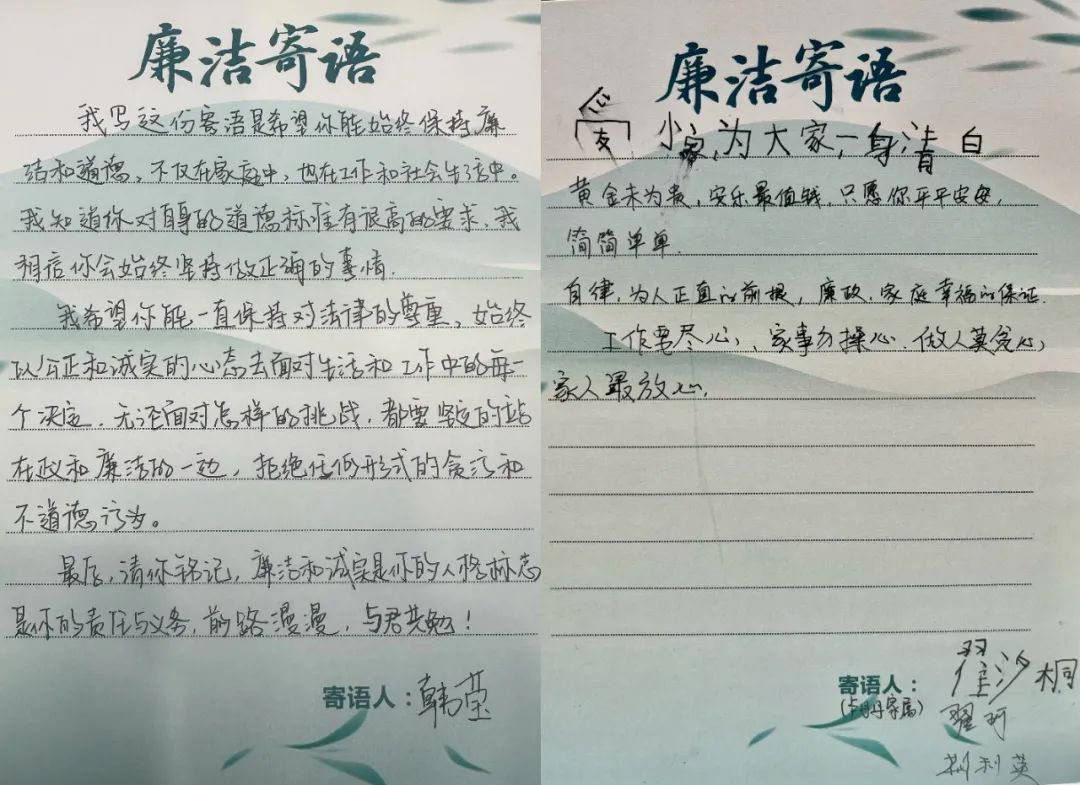 廉洁寄语
我写这份寄语是希望你能始终保持廉
洁和道德，不仅在家庭中，也在工作和社会生活中。
我知道你对自身的道德标准有很高的要求，我
相信你会始终坚持做正确的事情．
我希望你能一直保持对法律的尊重，始终
以公正和诚实的心态去面对生活和工作中的每
个决定．无论面对怎样的挑战，都要坚定的站
在政和廉洁的一边，拒绝任何形式的贪污和
不道德行为。
最后，请你铭记，廉洁和诚实是你的人格标志
是你的责任与义务，前路漫漫，与君共勉！
寄语人：韩莹
廉洁寄语
小家，为大家，一身清白
黄金未为贵，安乐最值钱，只愿你平平安安，
简简单单．
自律，为人正直的前提，廉政，家庭幸福的保证．
工作要尽心，家事勿操心．做人莫贪心，
家人最放心．
寄语人：翟沙桐
翟珂
利英